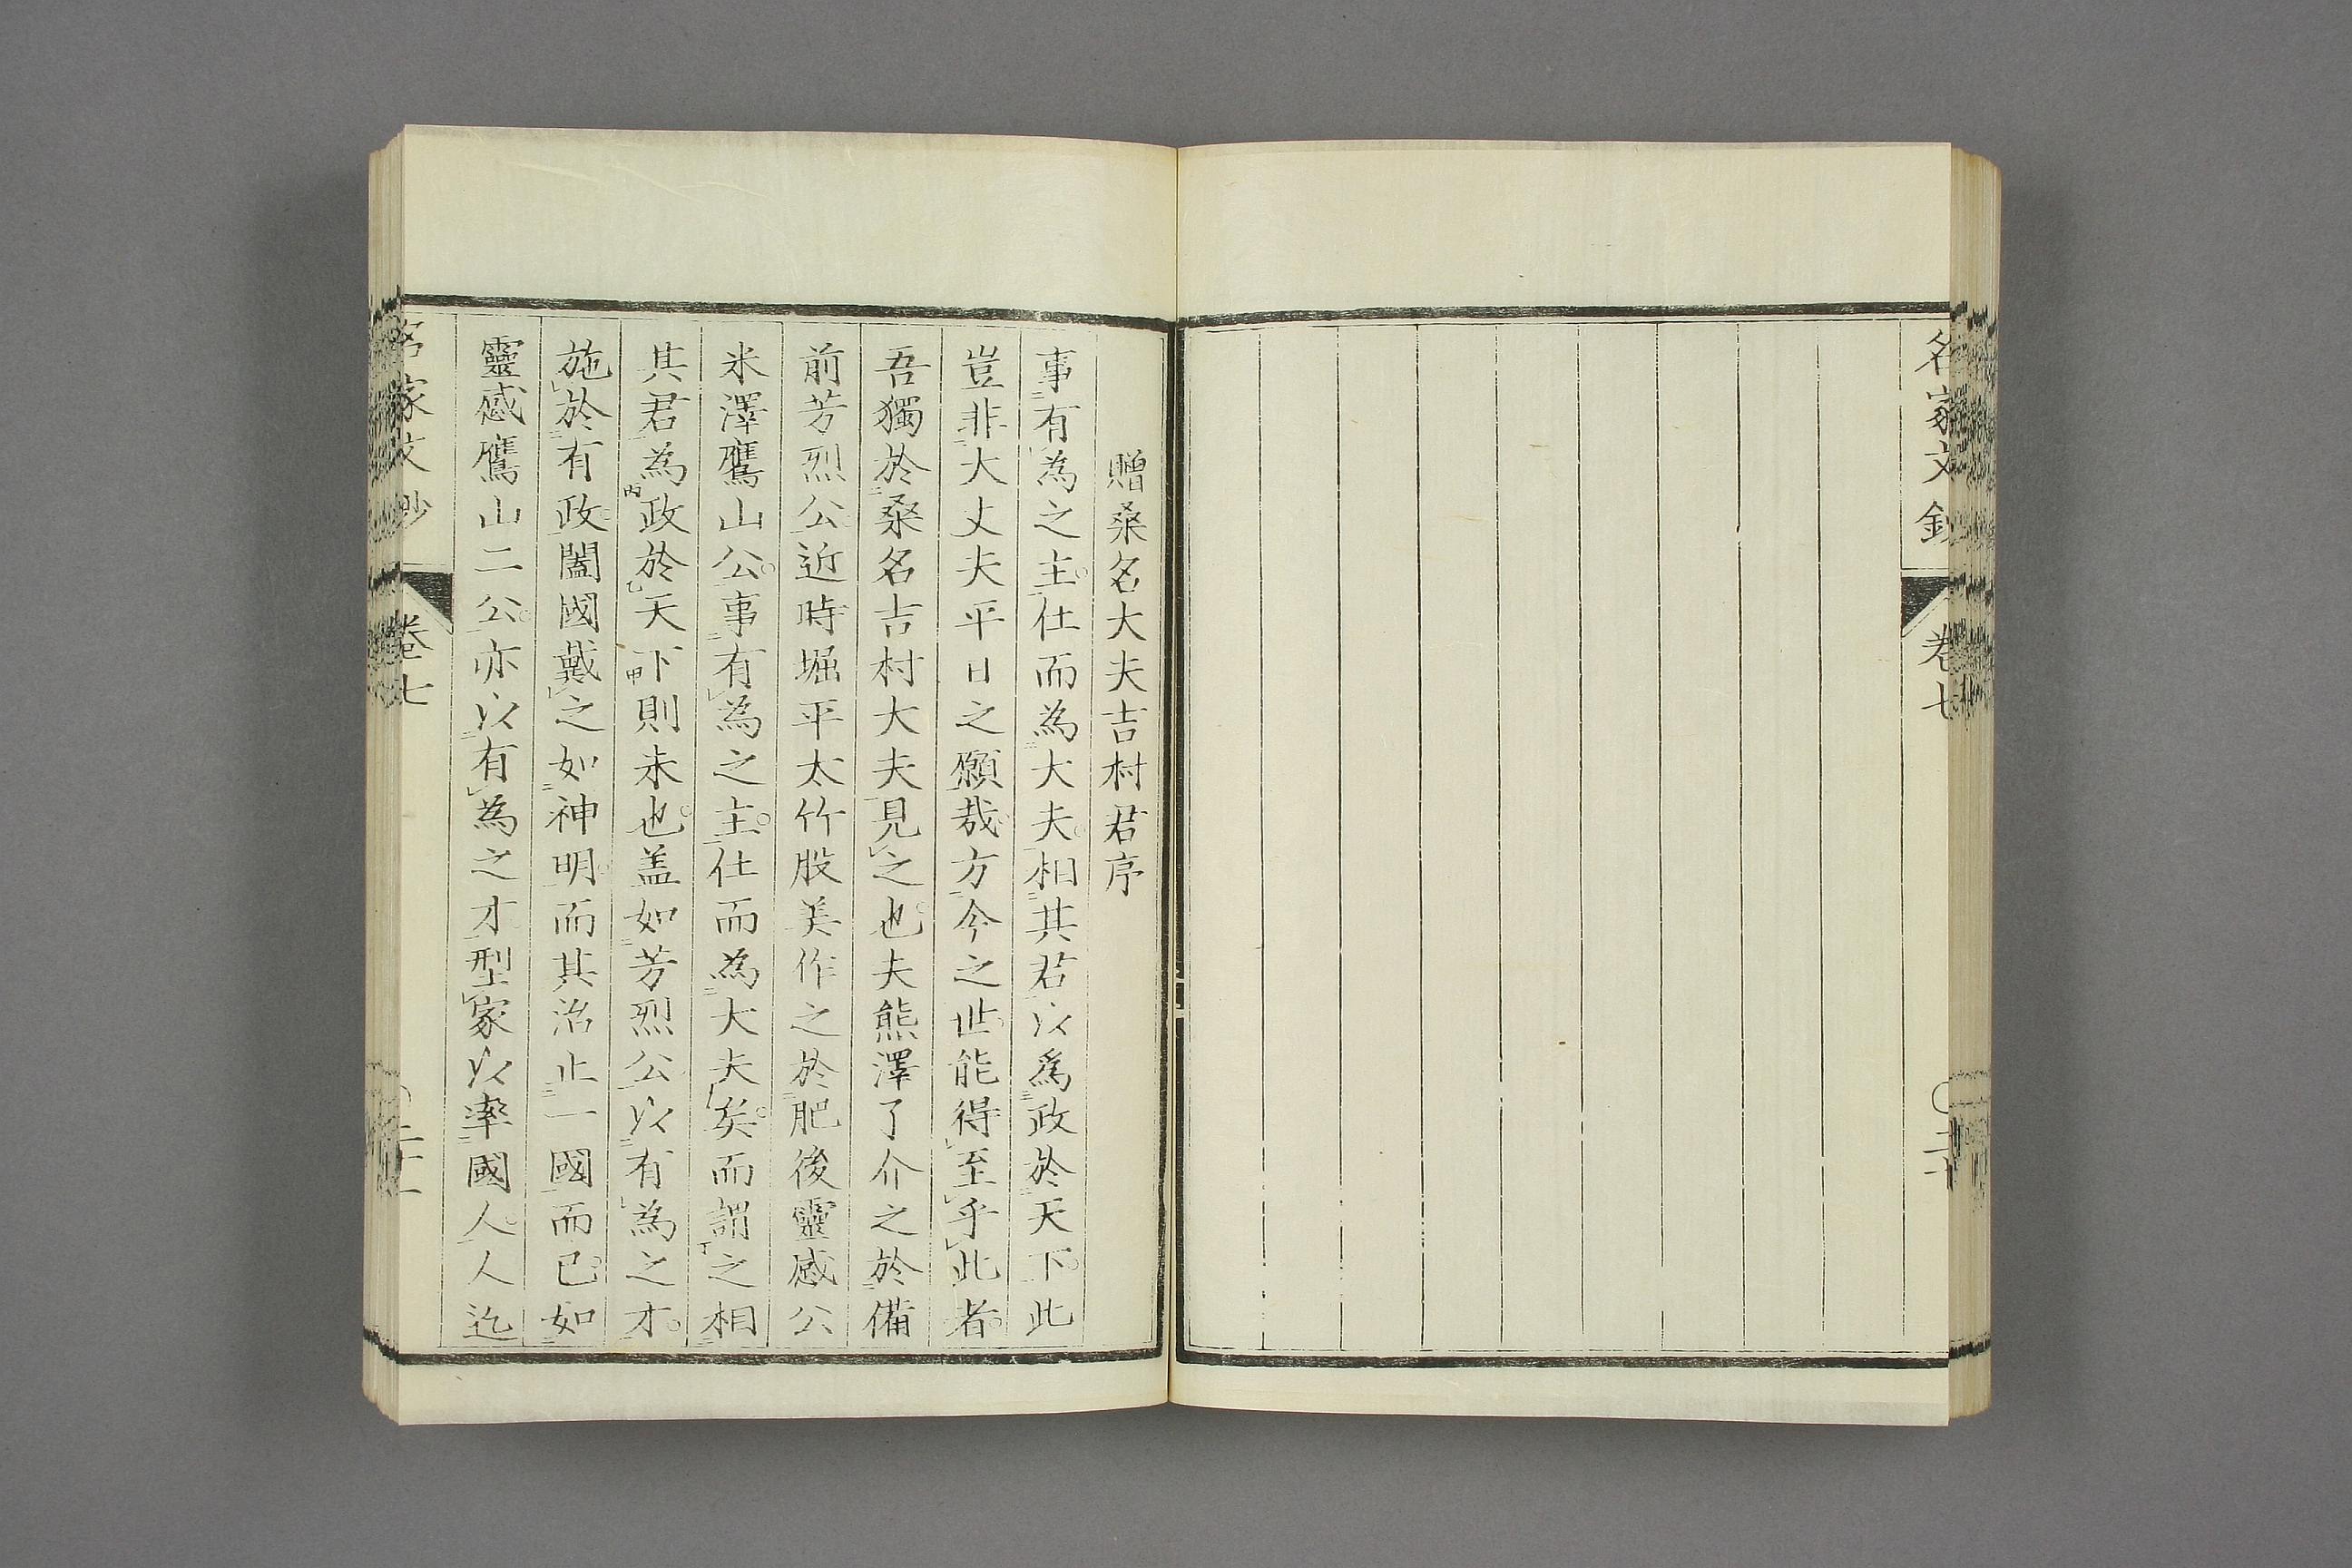 名家文鈔
卷七
〇二十
贈桑名大夫吉村君序
事有為之主。仕而為大夫。相其君以爲政於天下。此
豈非大丈夫平日之願哉。方今之世。能得至乎此者。
吾獨於桑名吉村大夫見之也。夫熊澤了介之於備
前芳烈公。近時堀平太竹股美作之於肥後靈感公
米澤鷹山公。事有為之主。仕而為大夫矣。而謂之相
其君為政於天下則未也。盖如芳烈公以有為之才。
施於有政。闔國戴之如神明。而其治止一國而已。如
靈感鷹山二公。亦以有為之才。型家以率國人。人迄
名家文鈔
卷七